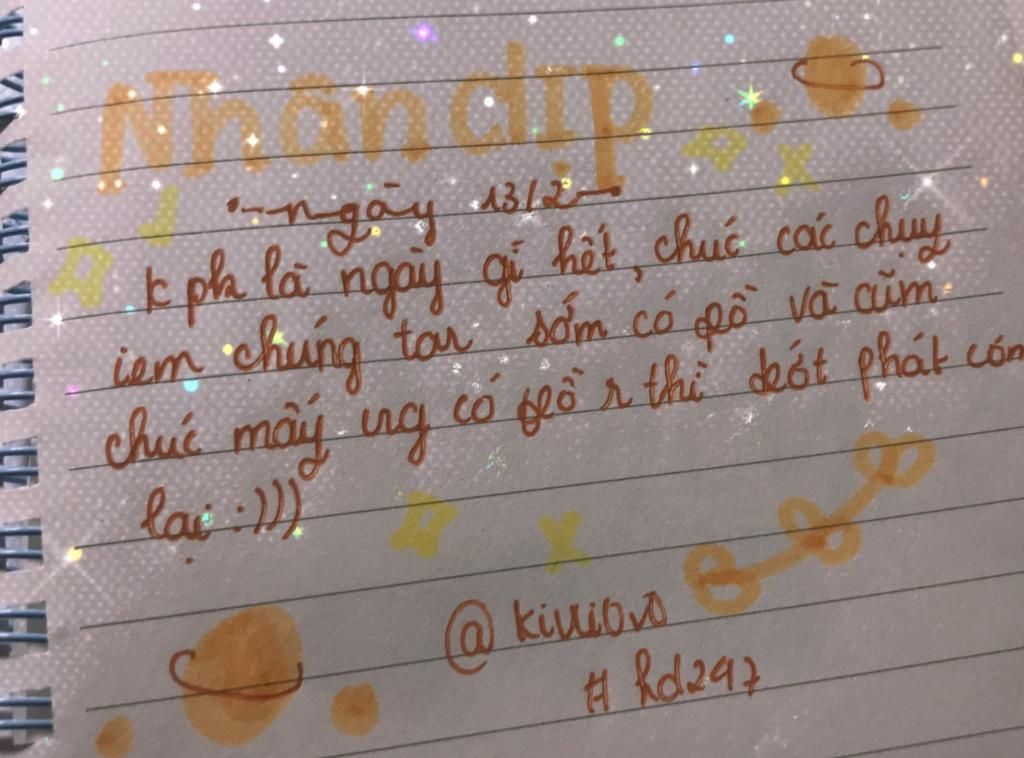 Nhân dịp
ngày 13/2
k ph là ngày gì hết, chúc các chụy
iem chúng ta sớm có bồ và cũm
chúc mấy ng có bồ r thì đớt phát còn
lại :)))
@kiuiovo
# hd297